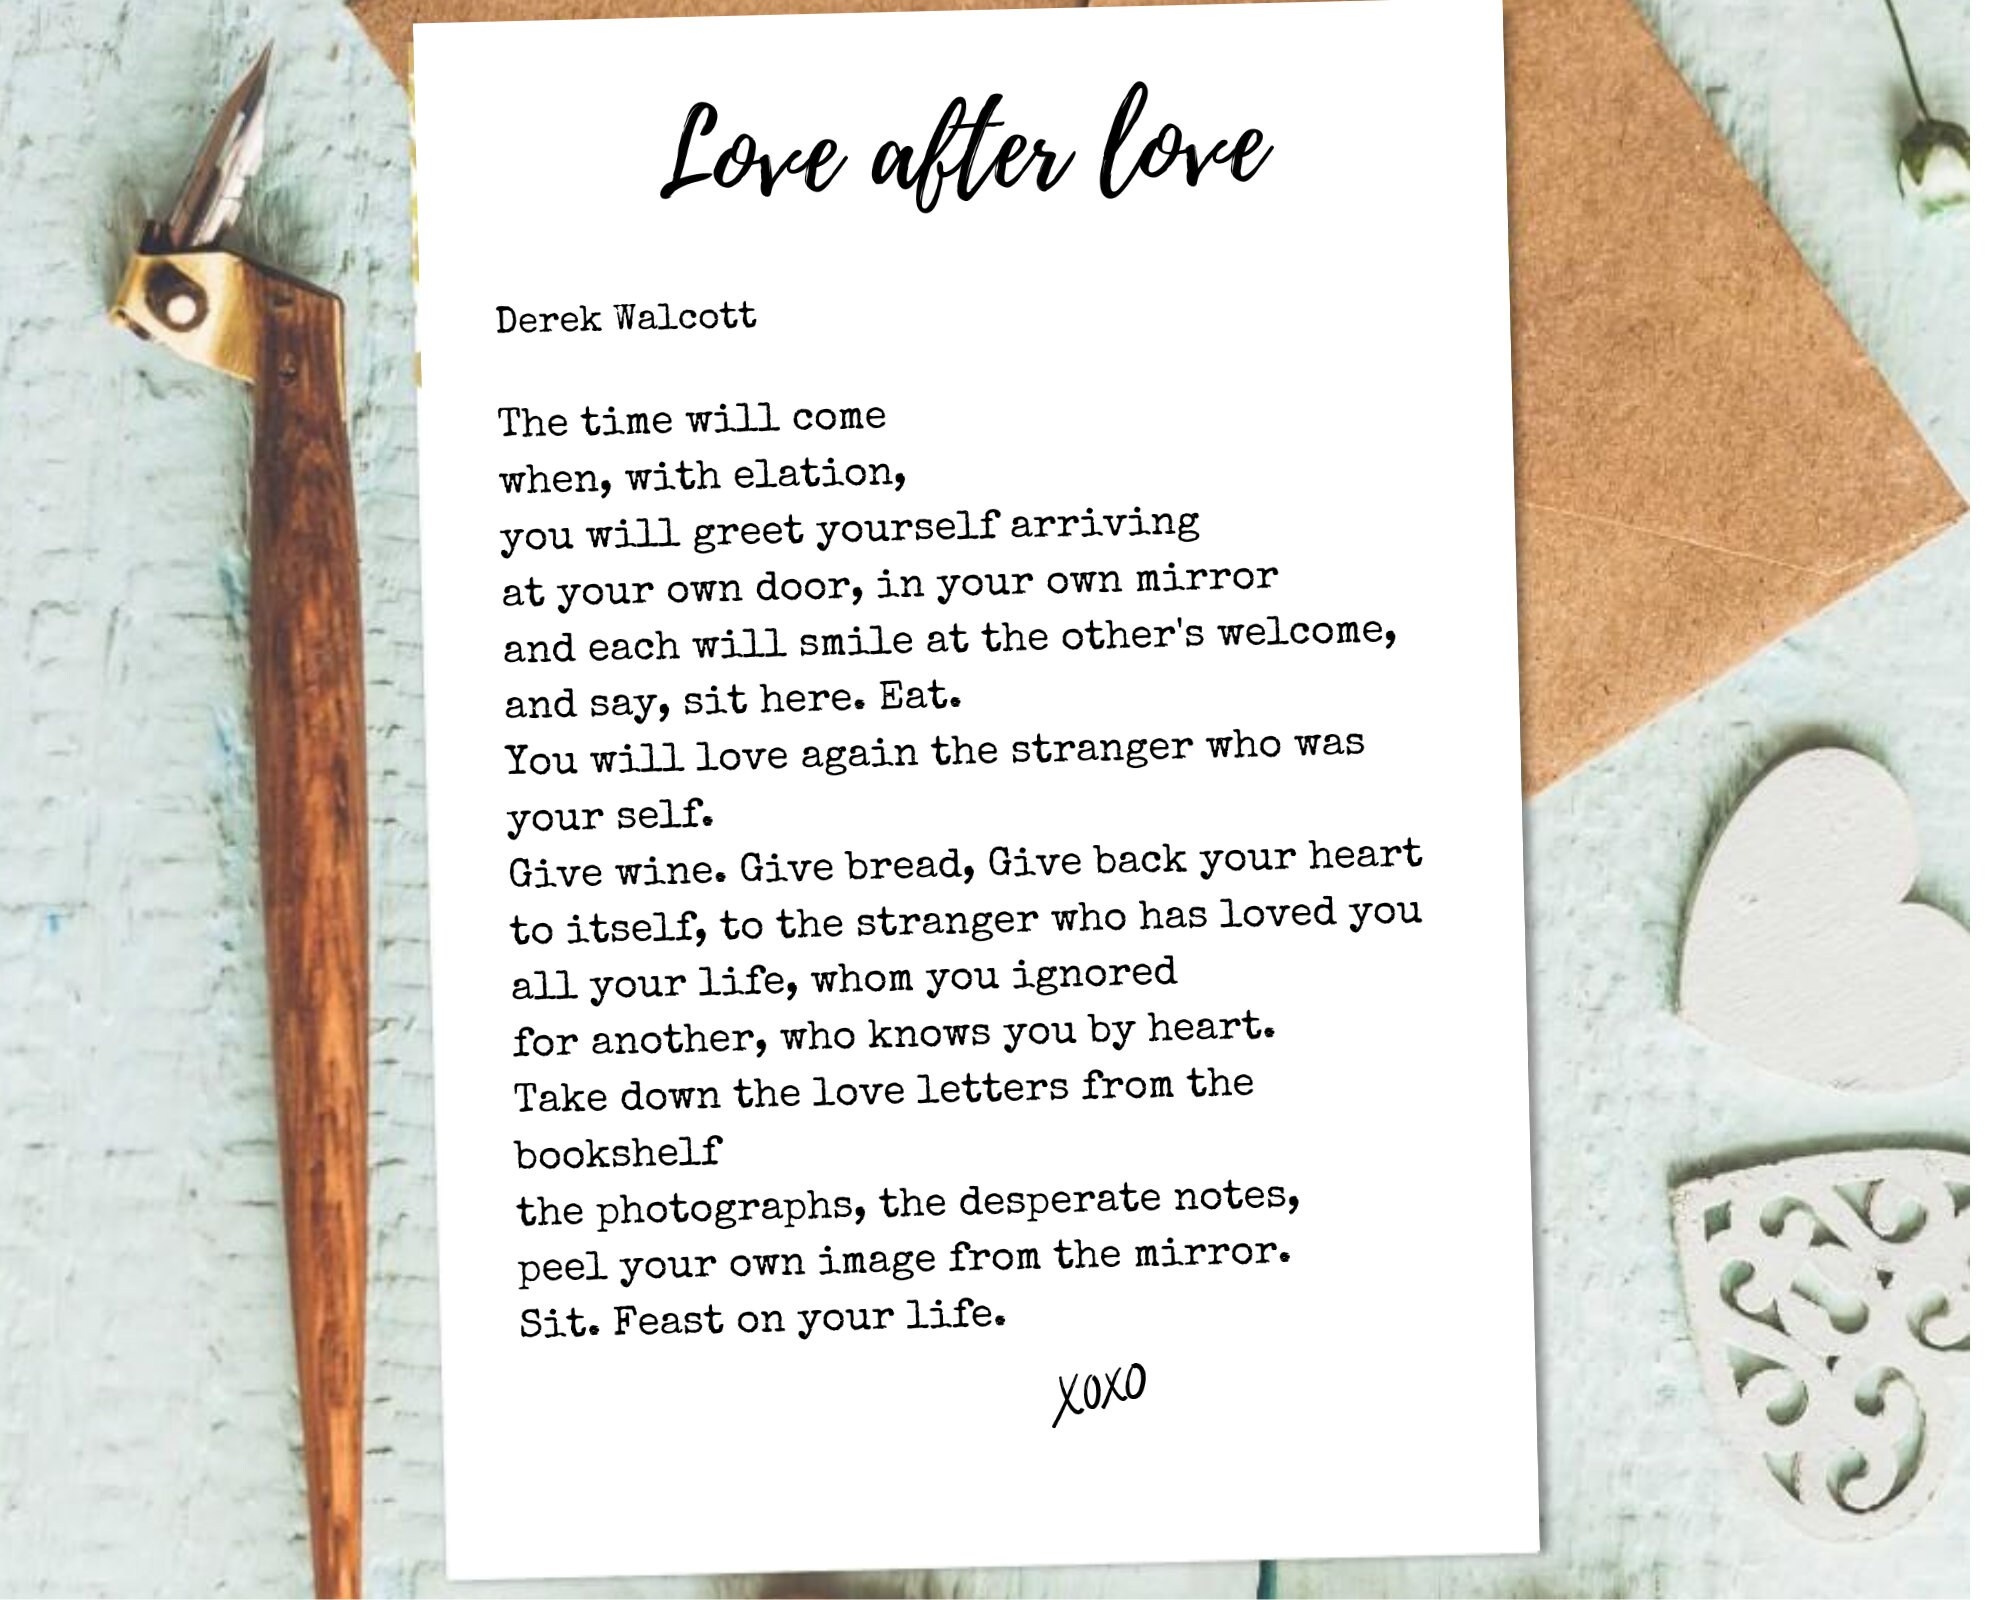 Love after love
Derek Walcott
The time will come
when, with elation,
you will greet yourself arriving
at your own door, in your own mirror
and each will smile at the other's welcome,
and say, sit here. Eat.
You will love again the stranger who was
your self.
Give wine. Give bread, Give back your heart
to itself, to the stranger who has loved you
all your life, whom you ignored
for another, who knows you by heart.
Take down the love letters from the
bookshelf
the photographs, the desperate notes,
peel your own image from the mirror.
Sit. Feast on your life.
XOXO